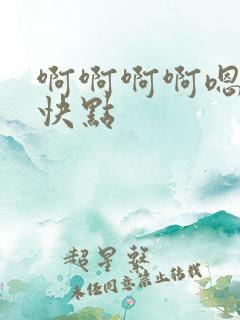 啊啊啊啊嗯
快點
超星鼕
未经同意禁止转载